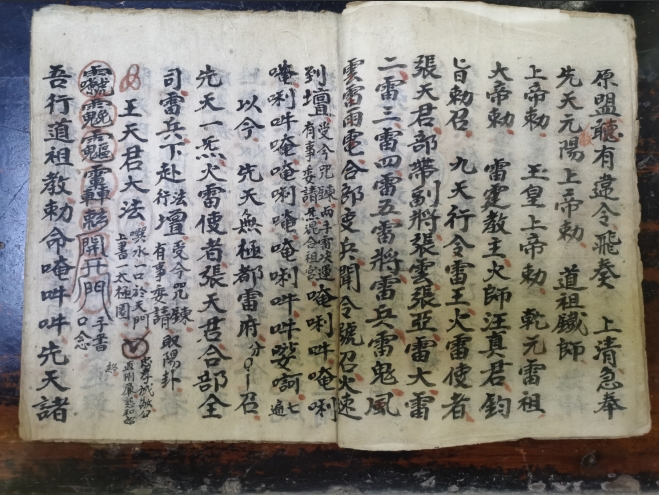 原盟聽有違令飛奏　上清急奉
先天元陽上帝勅　道祖鐵師
上帝勅　玉皇上帝勅　乾元雷祖
大帝勅　雷霆教主火師汪真君鈞
旨勅召　九天行令雷王火雷使者
張天君部帶副將張雲張亞雷大雷
二雷三雷四雷五雷將雷兵雷鬼風
雲雷雨電合部吏兵聞令號召火速
到壇
受今咒
有事委請
唵唎吽唵唎
唵唎吽唵唵唎唵唵唎吽吽
七遍
以今　先天無極都雷府
召
先天一炁火雷使者張天君合部全
司雷兵下赴
法
行
壇
受今咒
有事委請
取陽卦
王天君大法
噀水一口於天門
上書一太極圈
轟
開天門
手書
口念
吾行道祖教勅命唵吽吽先天諸